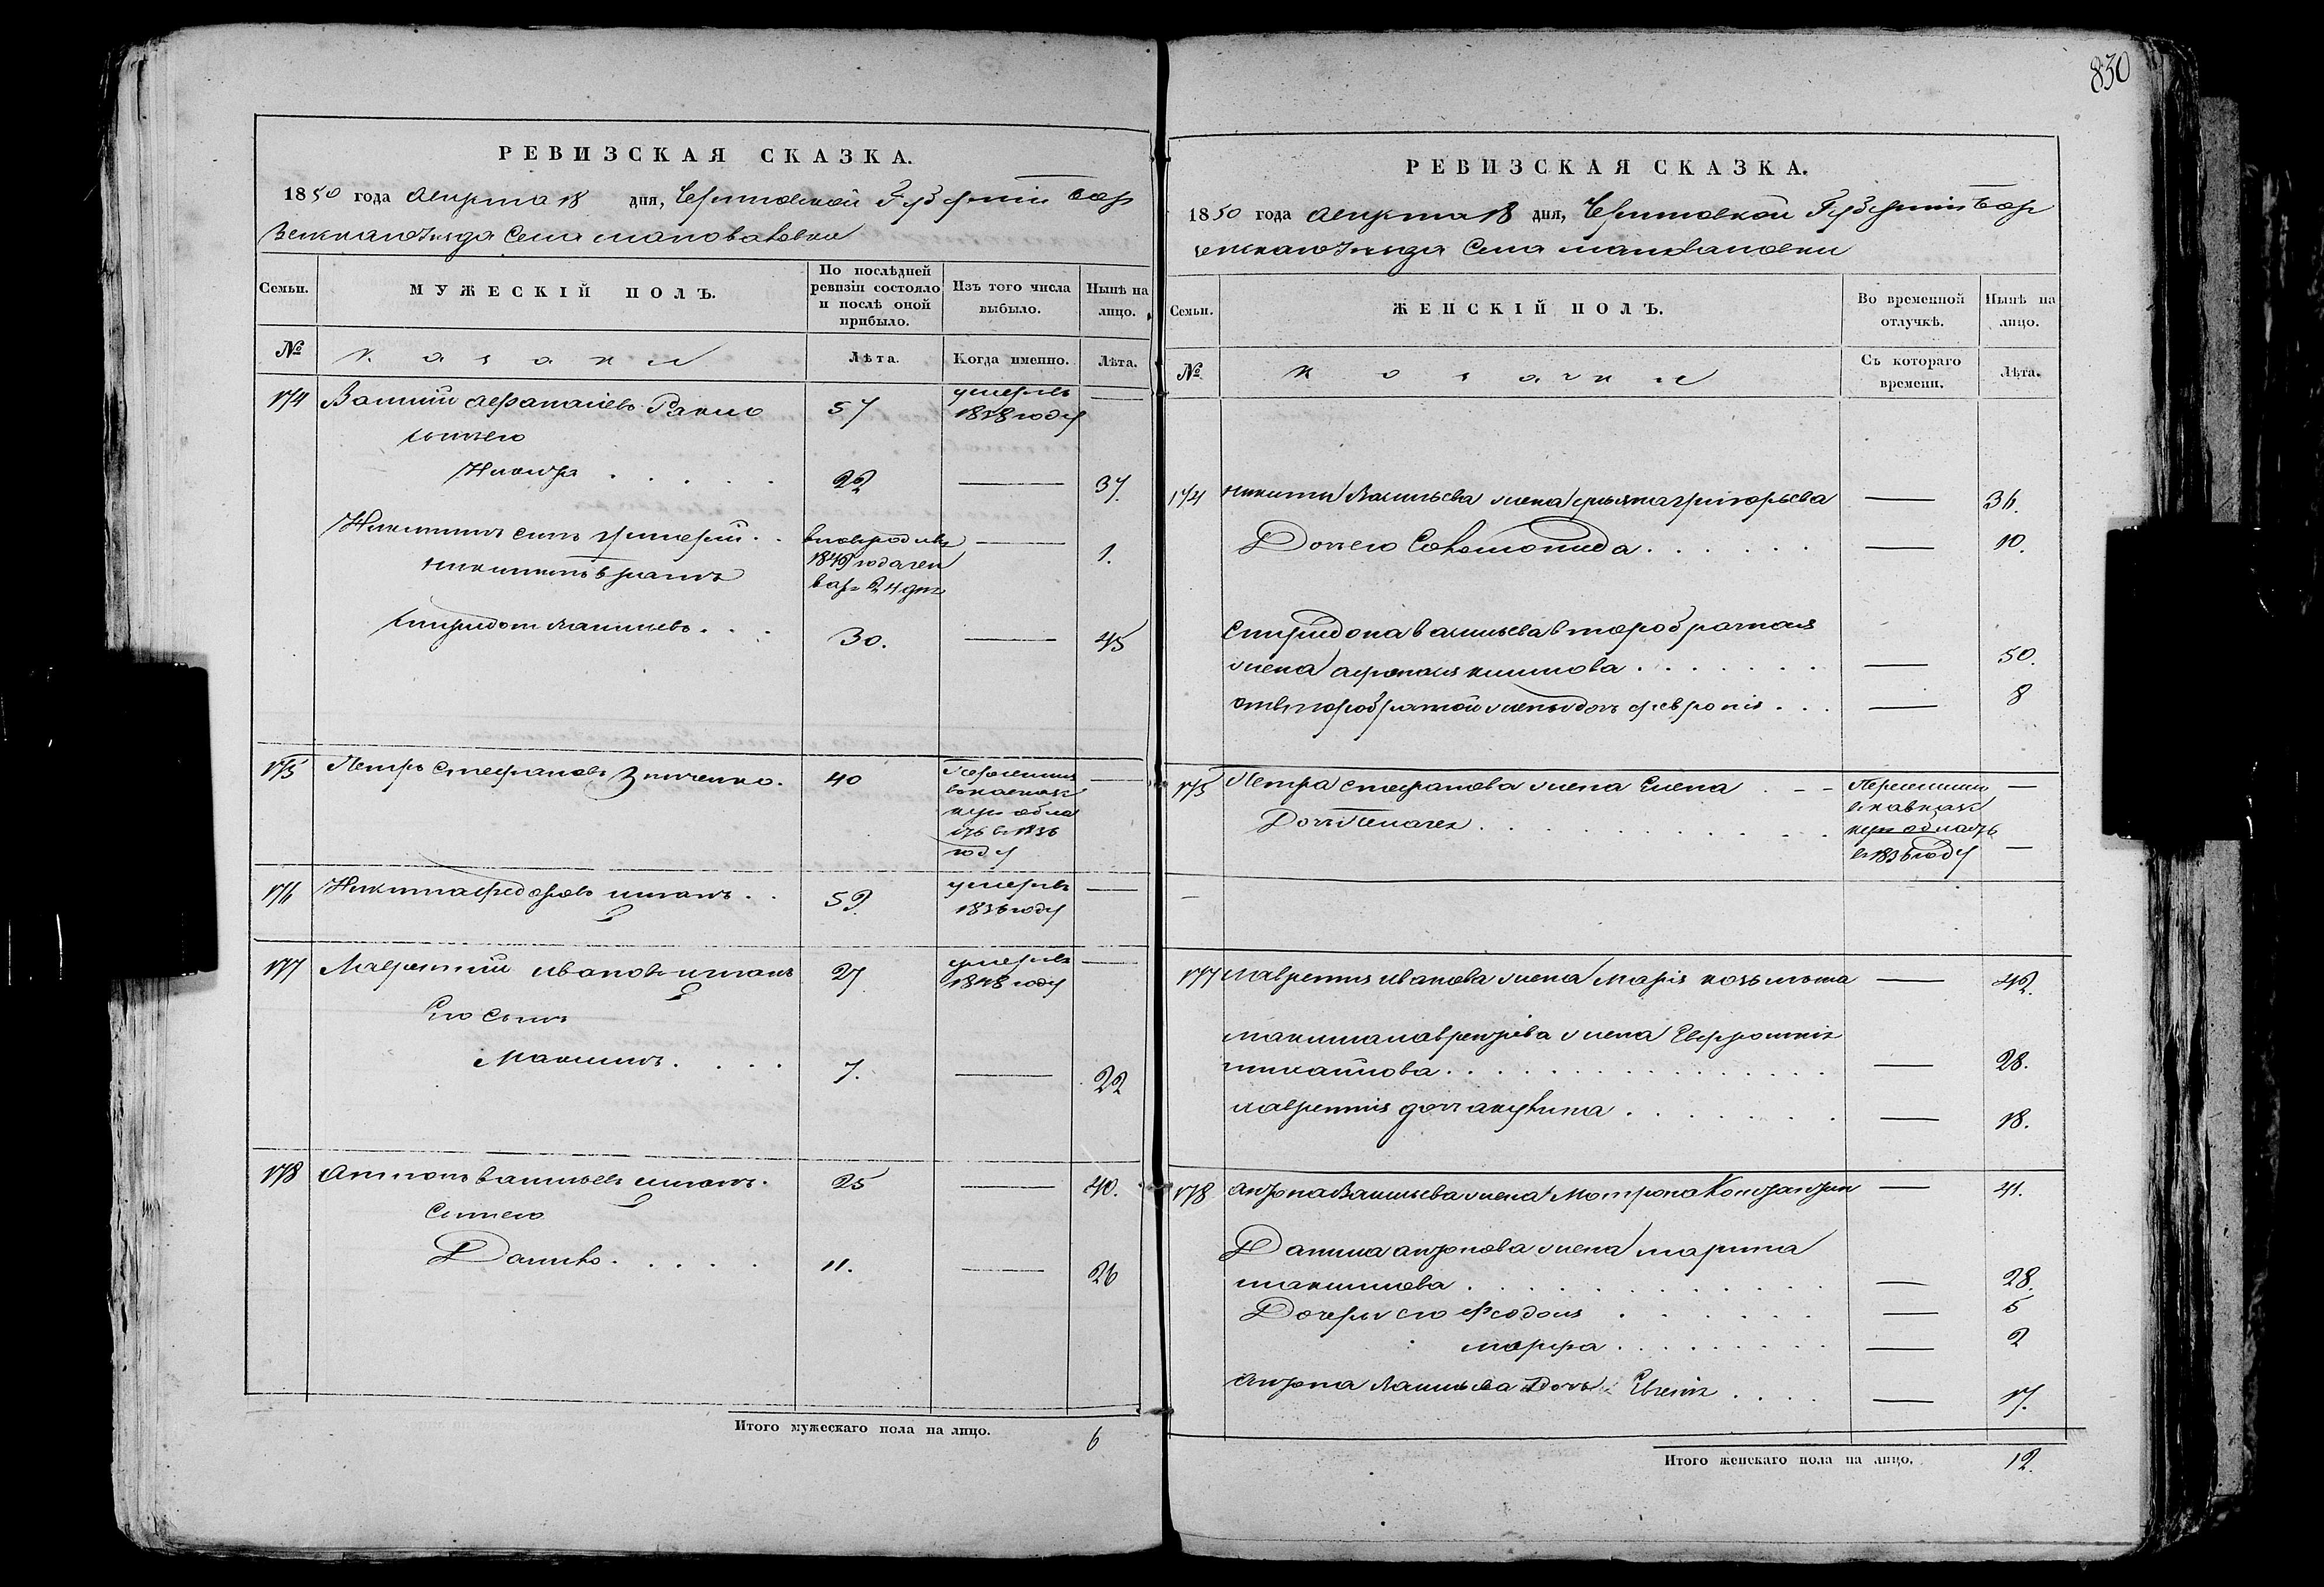 830
РЕВИЗСКАЯ СКАЗКА.
1850 года августа 18 дня, Черниговской Губернии Бор
зенскаго Уезда Села
Семьи.
МУЖЕСКІЙ ПОЛЪ.
По послѣдней ревизіи состояло и послѣ оной прибыло.
Изъ того числа выбыло.
Нынѣ на лицо.
№
казаки
Лѣта.
Когда именно.
Лѣта.
174 Василий Афанасиевъ 57 умеръ —
1838 году
сынъ его
Никита . . . . . 22 — 37.
Никитинъ сынъ Григорий . . вновь родивъ — 1.
1849 года ген
Никитинъ братъ варя 24 дня
Спиридонъ Василиевъ . . . 30. — 45
175 Петръ Стефановъ Зинченко. 40 Переселили —
въ Кавказ
кую обла
сть в 1836
году
176 Никита Федоровъ . . 59. умеръ —
1836 году
177 Лаврентий Ивановъ 27 умеръ —
1848 году
Его Сынъ
Максимъ . . . . 7. — 22
178 Антонъ Василиевъ 25 — 40.
Сынъ его
Данило . . . . . 11. — 26
Итого мужескаго пола на лицо. 6
РЕВИЗСКАЯ СКАЗКА.
1850 года августа 18 дня, Черниговской Губернии Бор
зенскаго Уезда Села
Семьи.
ЖЕНСКІЙ ПОЛЪ.
Во временной отлучкѣ.
Нынѣ на лицо.
№
козачки
Съ котораго времени.
Лѣта.
174 Никиты Васильева жена Ульяна Григорьева — 36.
Дочь его Соломонида . . . . . . — 10.
Спиридона Васильева второбрачная
жена Афанасия Климова . . . . . . . — 50.
от второбрачной жены дочь Феврония . . . — 8
175 Петра Стефанова жена Елена . - - Переселили —
в Кавказ
Дочь Пелагея . . . . . . . . . . . кую область
в 1836 году —
177 Лаврентия Иванова жена Мария Козьмина — 42.
Максима Лаврентиева жена Евфросиния
Михайлова . . . . . . . . . . . . . . . — 28.
Лаврентия дочь Акулина . . . . . . . — 18.
178 Антона Васильева жена Матрона Константин — 41.
Данила Антонова жена Марина
Максимова . . . . . . . . . . . . . — 28.
Дочери его Федосия . . . . . . — 5
Марфа . . . . . . . . . — 2
Антона Васильева Дочь Евгения . . . . — 17.
Итого женскаго пола на лицо. 12.